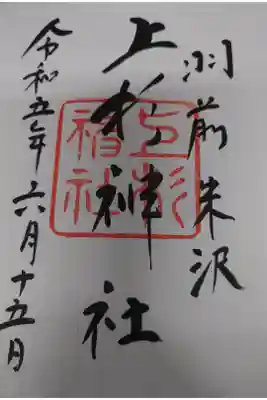 羽前米沢
上杉神社
令和五年六月十五月
上杉神社